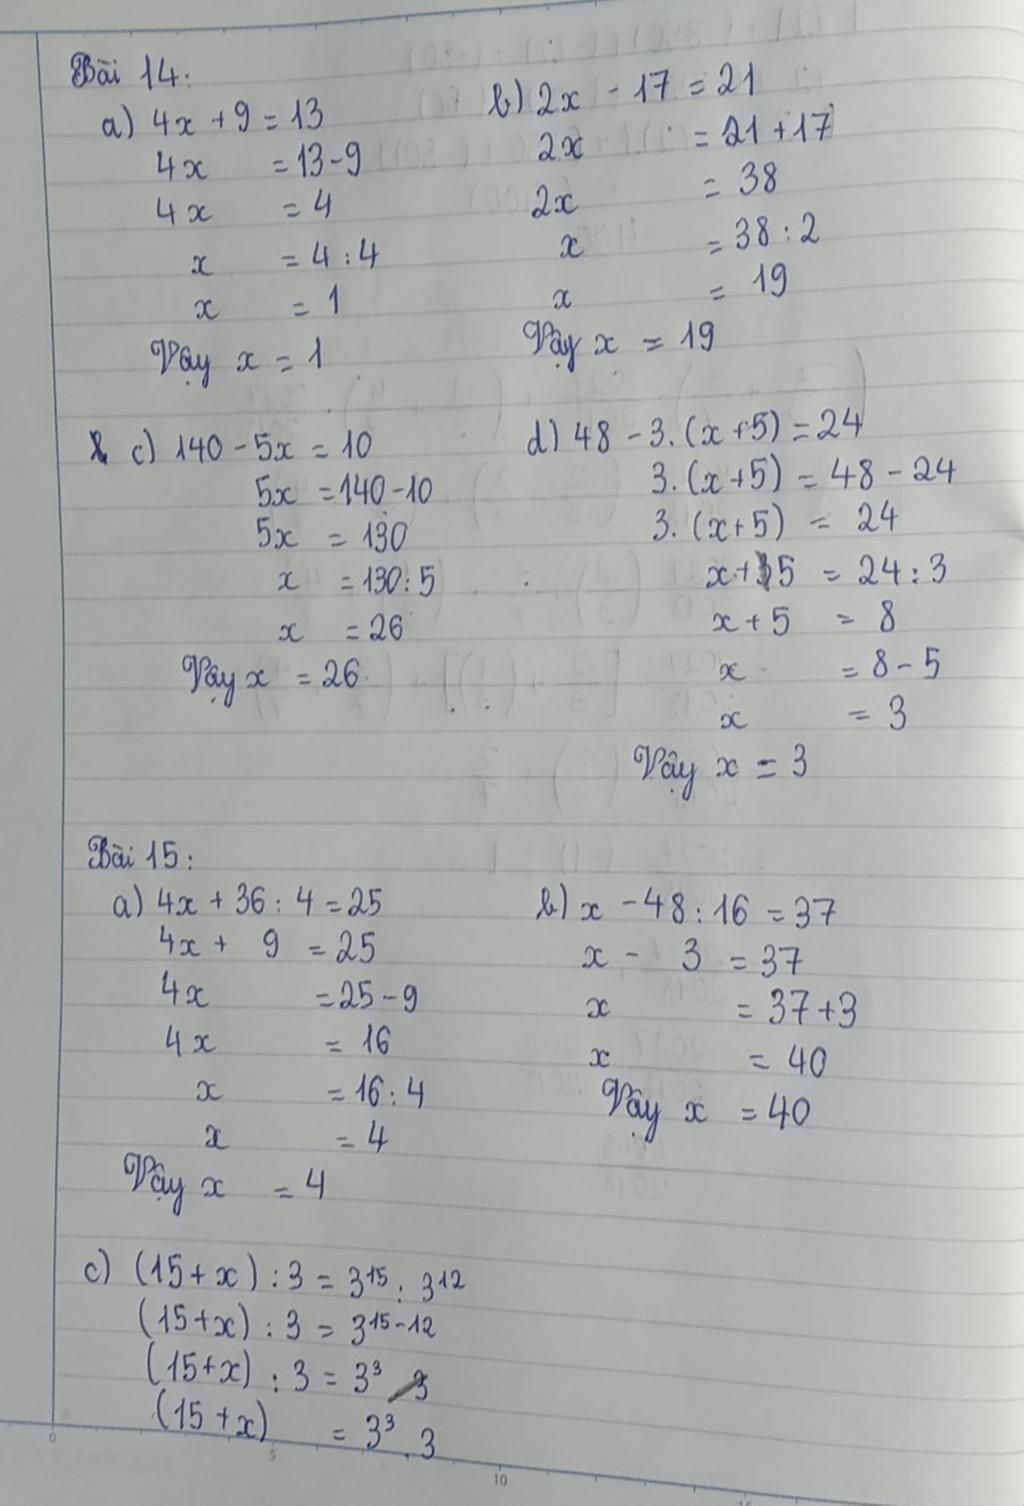 Bài 14:
a) 4x + 9 = 13
4x = 13 - 9
4x = 4
x = 4 : 4
x = 1
Vậy x = 1
b) 2x - 17 = 21
2x = 21 + 17
2x = 38
x = 38 : 2
x = 19
Vậy x = 19
c) 140 - 5x = 10
5x = 140 - 10
5x = 130
x = 130 : 5
x = 26
Vậy x = 26
d) 48 - 3. (x + 5) = 24
3. (x + 5) = 48 - 24
3. (x + 5) = 24
x + 5 = 24 : 3
x + 5 = 8
x = 8 - 5
x = 3
Vậy x = 3
Bài 15:
a) 4x + 36 : 4 = 25
4x + 9 = 25
4x = 25 - 9
4x = 16
x = 16 : 4
x = 4
Vậy x = 4
b) x - 48 : 16 = 37
x - 3 = 37
x = 37 + 3
x = 40
Vậy x = 40
c) (15 + x) : 3 = 3¹⁵ : 3¹²
(15 + x) : 3 = 3¹⁵⁻¹²
(15 + x) : 3 = 3³
(15 + x) = 3³ . 3
0 5 10